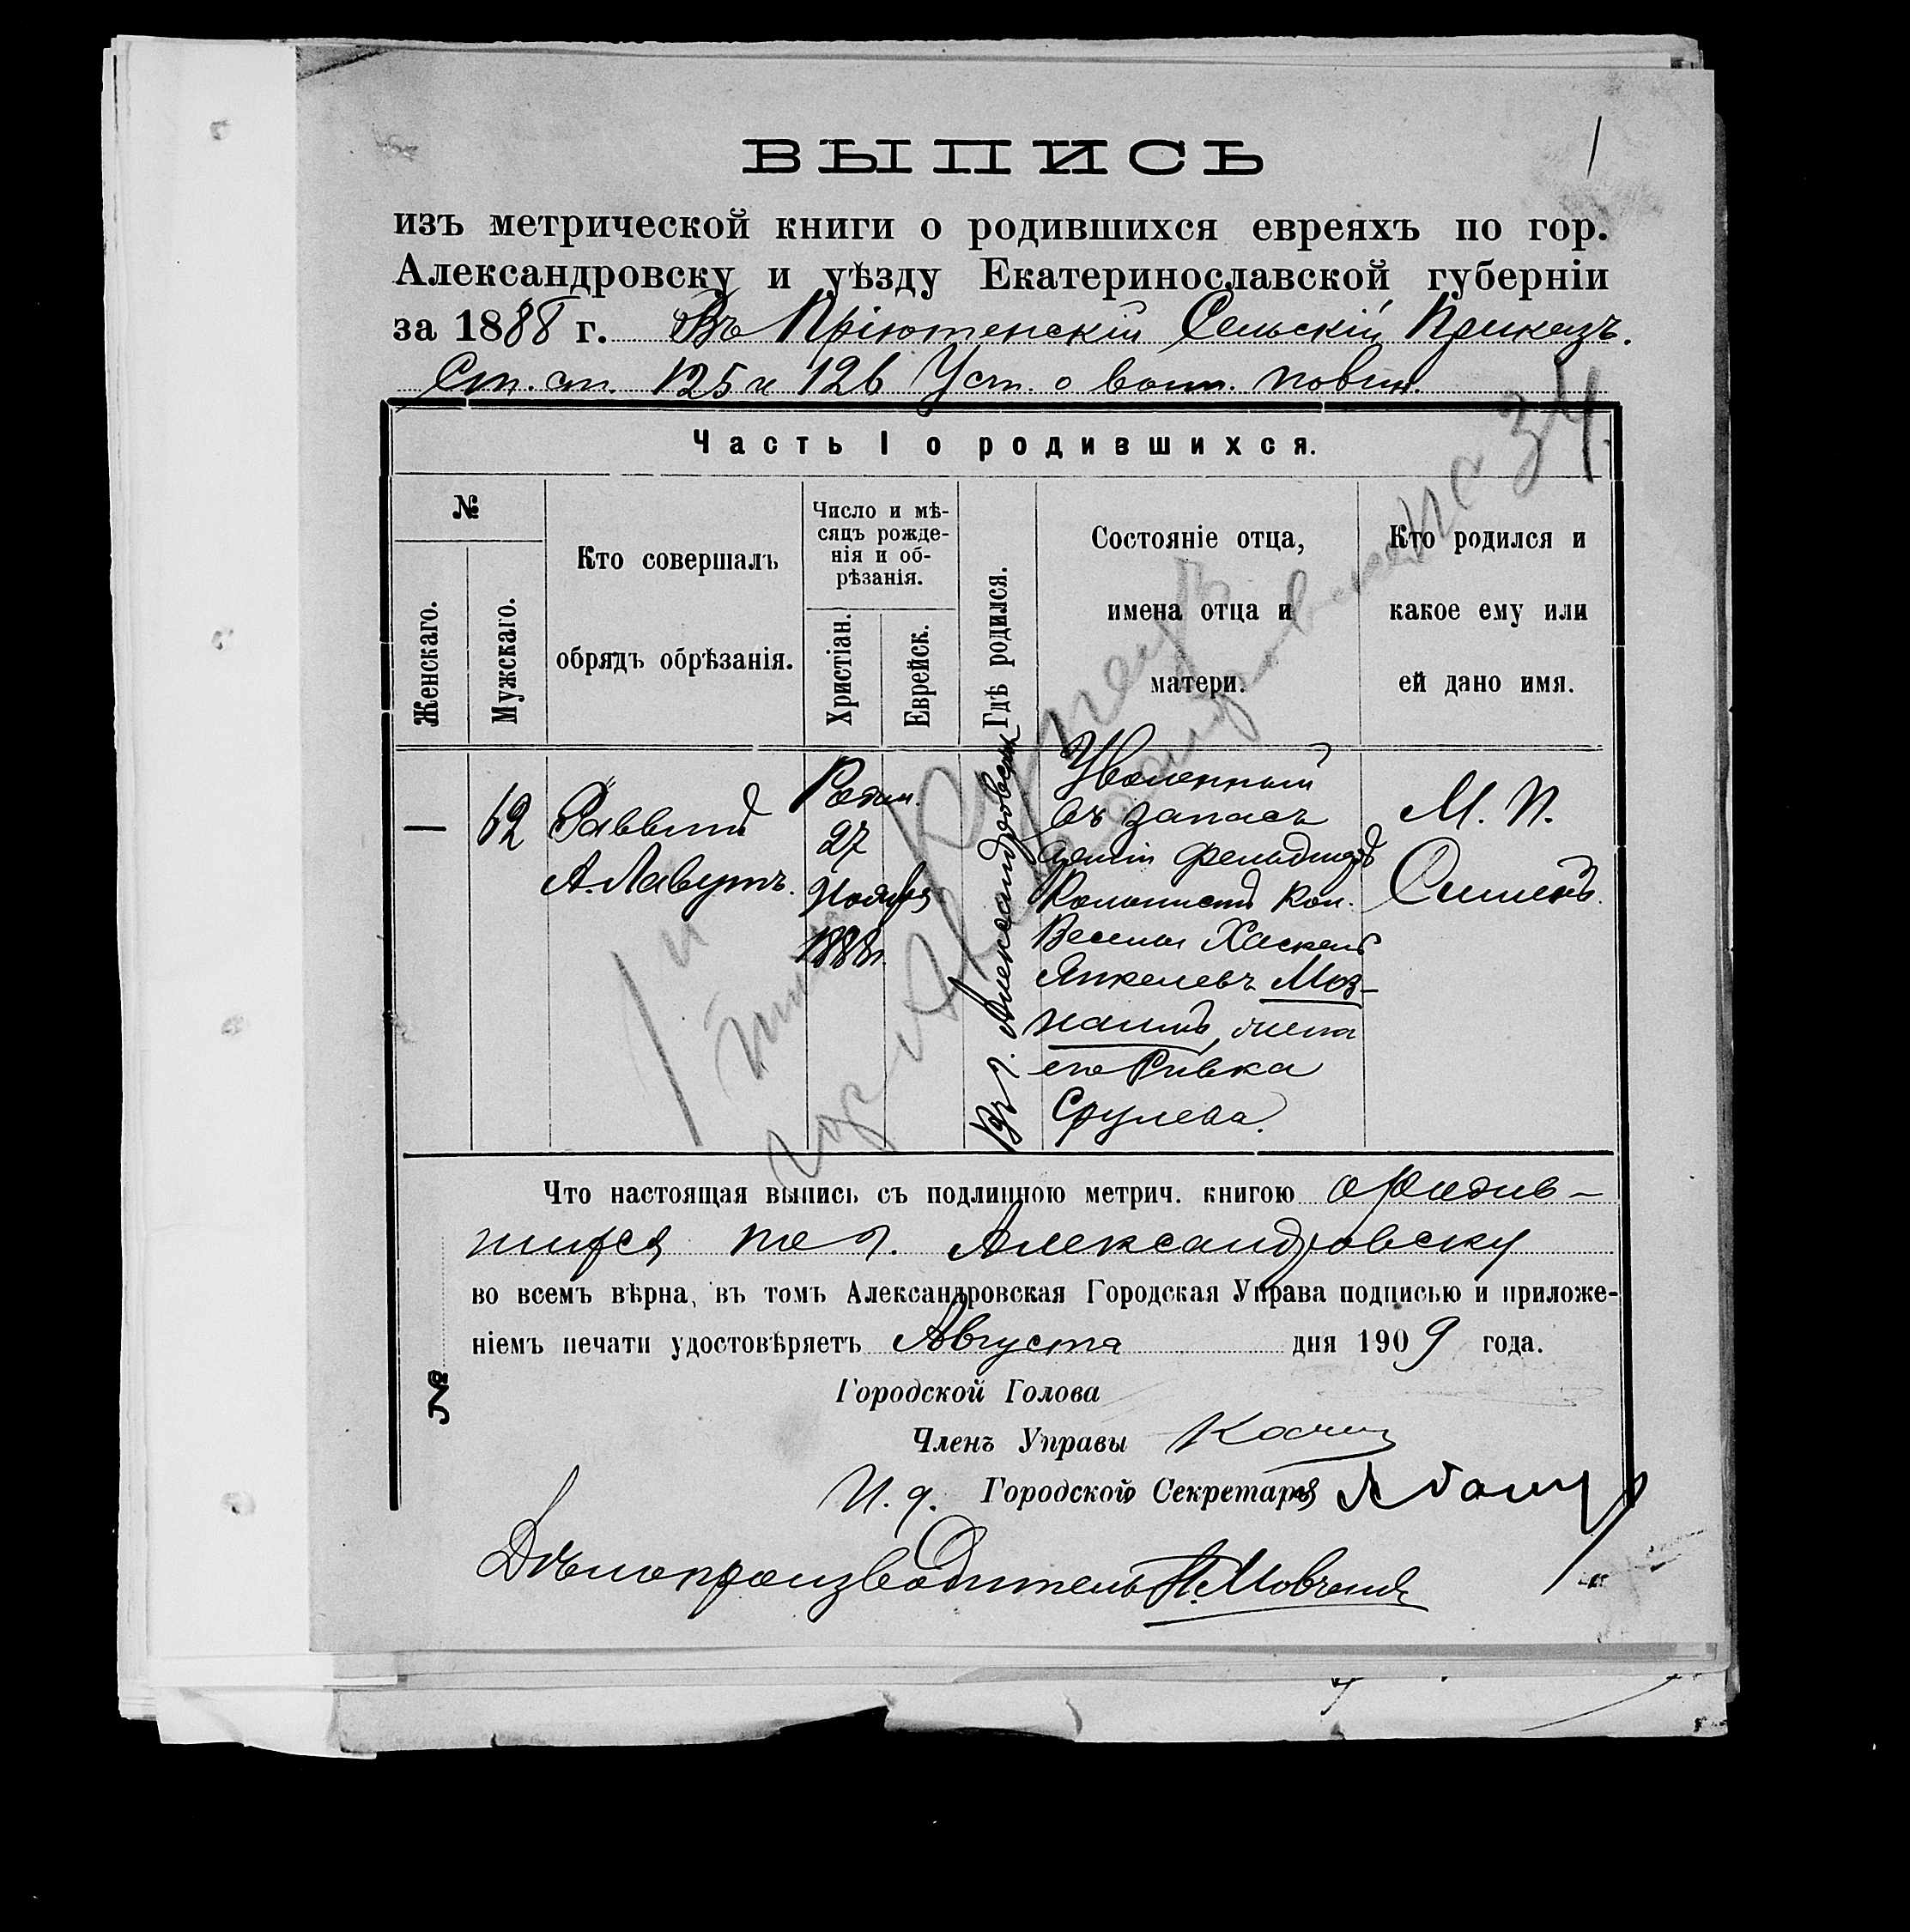 1
ВЫПИСЬ
изъ метрической книги о родившихся евреяхъ по гор.
Александровску и уѣзду Екатеринославской губерніи
за 1888 г. Въ Пріютенскій Сельскій Приказъ.
Ст. ст. 125 и 126 Уст. о воин. повин.
34
Часть I о родившихся.
№
Женскаго.
Мужскаго.
Кто совершалъ
обрядъ обрѣзанія.
Число и мѣ-
сяцъ рожде-
нія и об-
рѣзанія.
Христіан.
Еврейск.
Гдѣ родился.
Состояніе отца,
имена отца и
матери.
Кто родился и
какое ему или
ей дано имя.
—
62
Раввинъ
А. Лавутъ.
Родил.
27
Ноября
1888 г.
Въ г. Александровскѣ
Уволенный
въ запасъ
арміи фельдшеръ
Колонистъ Кол.
Веселой Хаскель
Янкелевъ Моз-
наимъ, жена
его Ривка
Срулева.
М. П.
Симонъ.
Что настоящая выпись съ подлинною метрич. книгою о родив-
шихся по г. Александровску
во всемъ вѣрна, въ томъ Александровская Городская Управа подписью и приложе-
ніемъ печати удостовѣряетъ Августа дня 1909 года.
№
Городской Голова
Членъ Управы
И. д. Городского Секретаря
Дѣлопроизводитель Мовчанъ